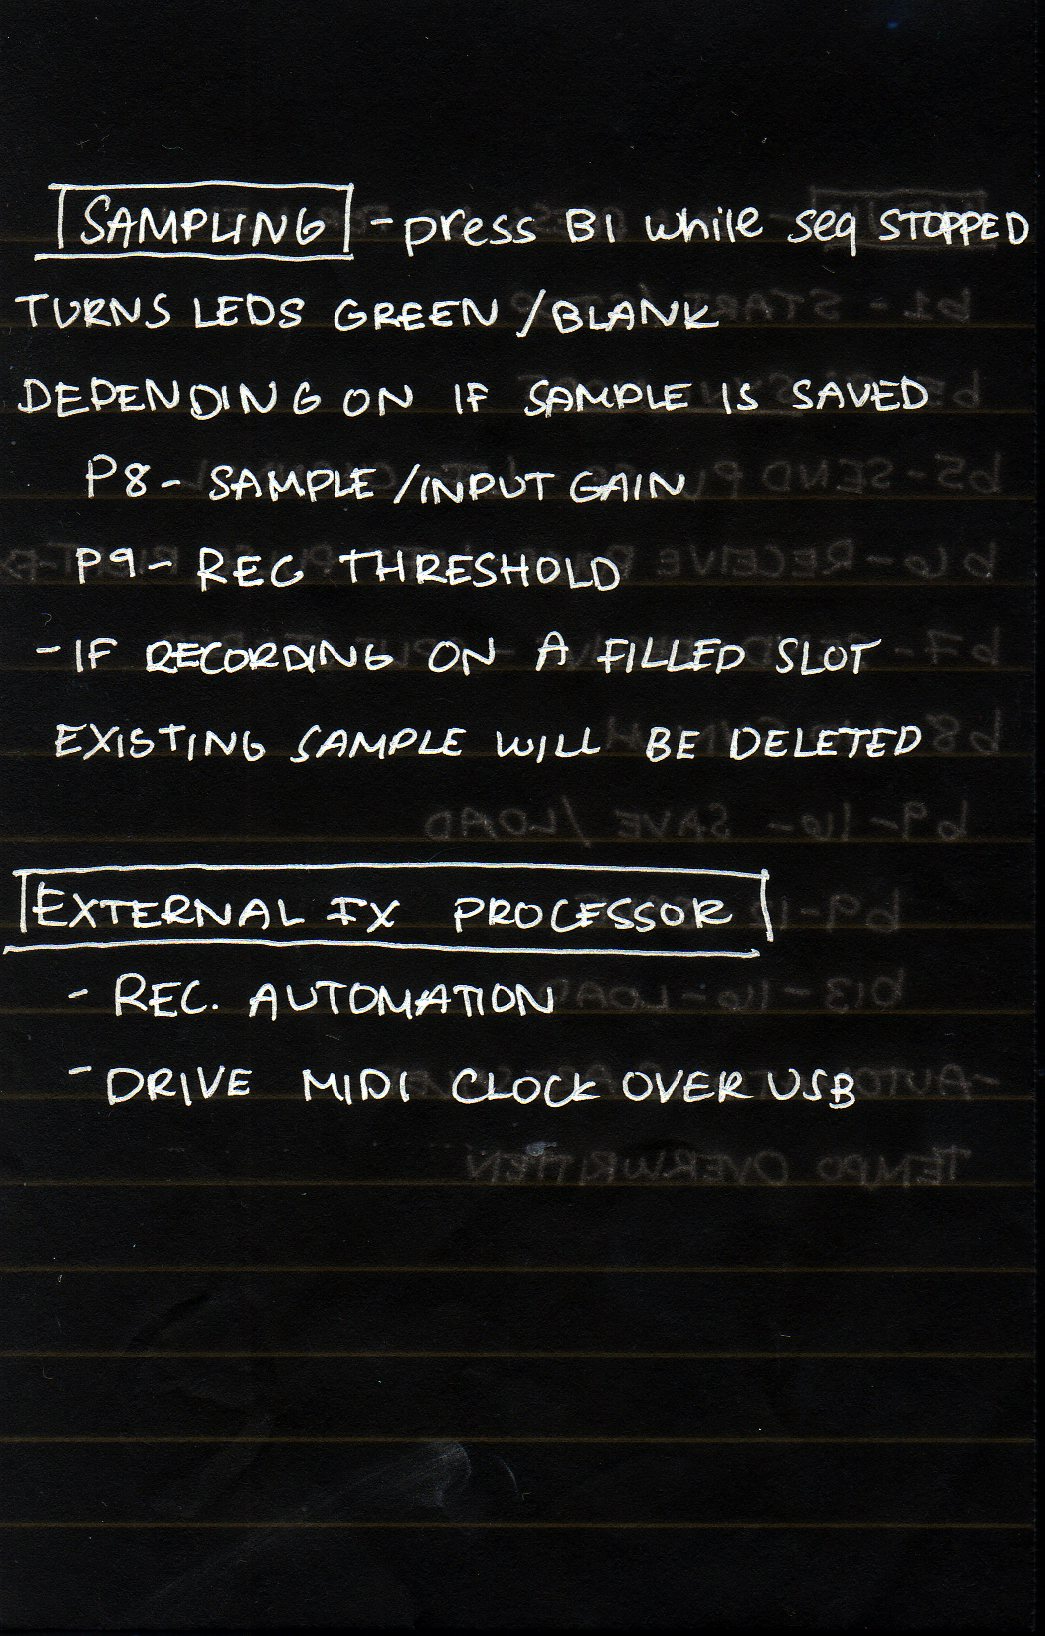 SAMPLING - press B1 while seq STOPPED
TURNS LEDS GREEN/BLANK
DEPENDING ON IF SAMPLE IS SAVED
P8- SAMPLE/INPUT GAIN
P9- REC THRESHOLD
- IF RECORDING ON A FILLED SLOT
EXISTING SAMPLE WILL BE DELETED
EXTERNAL FX PROCESSOR
- REC. AUTOMATION
- DRIVE MIDI CLOCK OVER USB